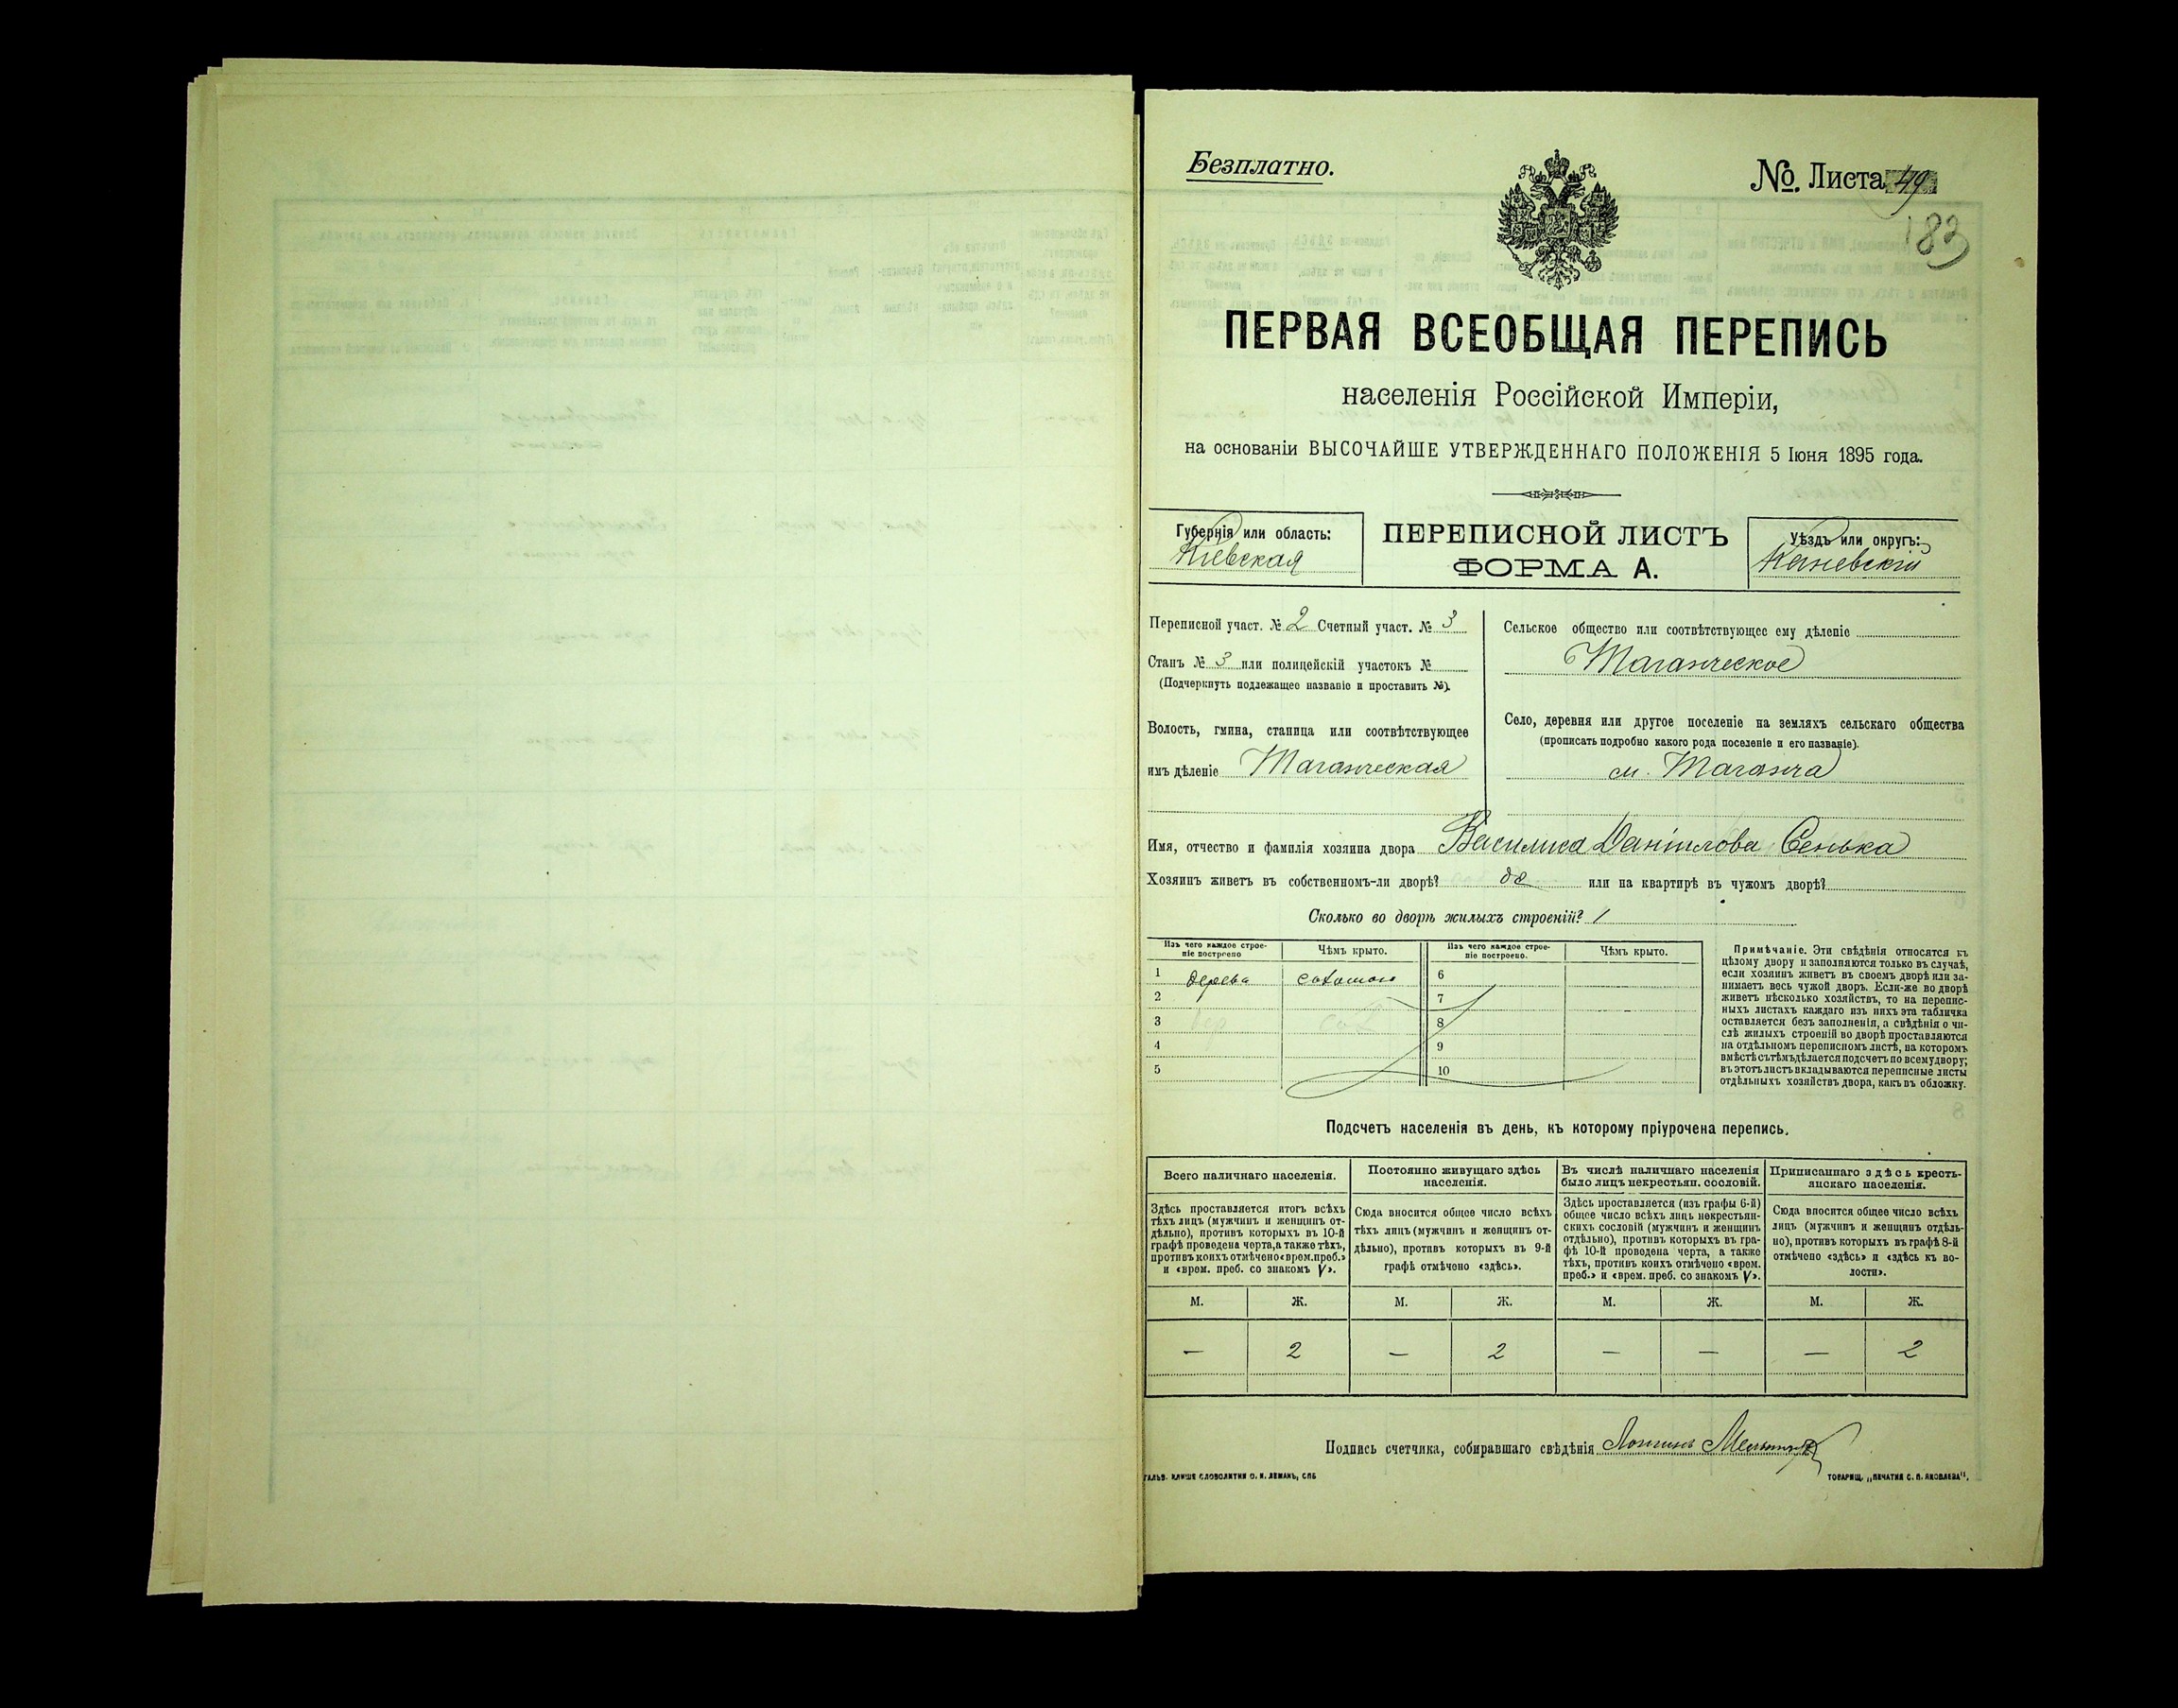 Безплатно.
№. Листа 49
183
ПЕРВАЯ ВСЕОБЩАЯ ПЕРЕПИСЬ
населенія Россійской Имперіи,
на основаніи ВЫСОЧАЙШЕ УТВЕРЖДЕННАГО ПОЛОЖЕНІЯ 5 Іюня 1895 года.
Губернія или область:
Кіевская
ПЕРЕПИСНОЙ ЛИСТЪ
ФОРМА А.
Уѣздъ или округъ:
Каневскій
Переписной участ. № 2 Счетный участ. № 3
Станъ № 3 или полицейскій участокъ №
(Подчеркнуть подлежащее названіе и проставить №).
Волость, гмина, станица или соотвѣтствующее
имъ дѣленіе Таганческая
Сельское общество или соотвѣтствующее ему дѣленіе
Таганческое
Село, деревня или другое поселеніе на земляхъ сельскаго общества
(прописать подробно какого рода поселеніе и его названіе).
м. Таганча
Имя, отчество и фамилія хозяина двора Василиса Данилова Сенька
Хозяинъ живетъ въ собственномъ-ли дворѣ? да или на квартирѣ въ чужомъ дворѣ?
Сколько во дворѣ жилыхъ строеній? 1
Изъ чего каждое строе-
ніе построено
Чѣмъ крыто.
Изъ чего каждое строе-
ніе построено.
Чѣмъ крыто.
1 дерева соломою 6
2 7
3 8
4 9
5 10
Примѣчаніе. Эти свѣдѣнія относятся къ
цѣлому двору и заполняются только въ случаѣ,
если хозяинъ живетъ въ своемъ дворѣ или за-
нимаетъ весь чужой дворъ. Если-же во дворѣ
живетъ нѣсколько хозяйствъ, то на перепис-
ныхъ листахъ каждаго изъ нихъ эта табличка
оставляется безъ заполненія, а свѣдѣнія о чи-
слѣ жилыхъ строеній во дворѣ проставляются
на отдѣльномъ переписномъ листѣ, на которомъ
вмѣстѣ съ тѣмъ дѣлается подсчетъ по всему двору;
въ этотъ листъ вкладываются переписные листы
отдѣльныхъ хозяйствъ двора, какъ въ обложку.
Подсчетъ населенія въ день, къ которому пріурочена перепись.
Всего наличнаго населенія.
Здѣсь проставляется итогъ всѣхъ
тѣхъ лицъ (мужчинъ и женщинъ от-
дѣльно), противъ которыхъ въ 10-й
графѣ проведена черта, а также тѣхъ,
противъ коихъ отмѣчено «врем. преб.»
и «врем. преб. со знакомъ V».
Постоянно живущаго здѣсь
населенія.
Сюда вносится общее число всѣхъ
тѣхъ лицъ (мужчинъ и женщинъ от-
дѣльно), противъ которыхъ въ 9-й
графѣ отмѣчено «здѣсь».
Въ числѣ наличнаго населенія
было лицъ некрестьян. сословій.
Здѣсь проставляется (изъ графы 6-й)
общее число всѣхъ лицъ некрестьян-
скихъ сословій (мужчинъ и женщинъ
отдѣльно), противъ которыхъ въ гра-
фѣ 10-й проведена черта, а также
тѣхъ, противъ коихъ отмѣчено «врем.
преб.» и «врем. преб. со знакомъ V».
Приписаннаго здѣсь кресть-
янскаго населенія.
Сюда вносится общее число всѣхъ
лицъ (мужчинъ и женщинъ отдѣль-
но), противъ которыхъ въ графѣ 8-й
отмѣчено «здѣсь» и «здѣсь къ во-
лости».
М. Ж. М. Ж. М. Ж. М. Ж.
— 2 — 2 — — — 2
Подпись счетчика, собиравшаго свѣдѣнія
ГАЛЬВ. КЛИШЕ СЛОВОЛИТНИ О. И. ЛЕМАНЪ, СПБ
ТОВАРИЩ. „ПЕЧАТНЯ С. П. ЯКОВЛЕВА".